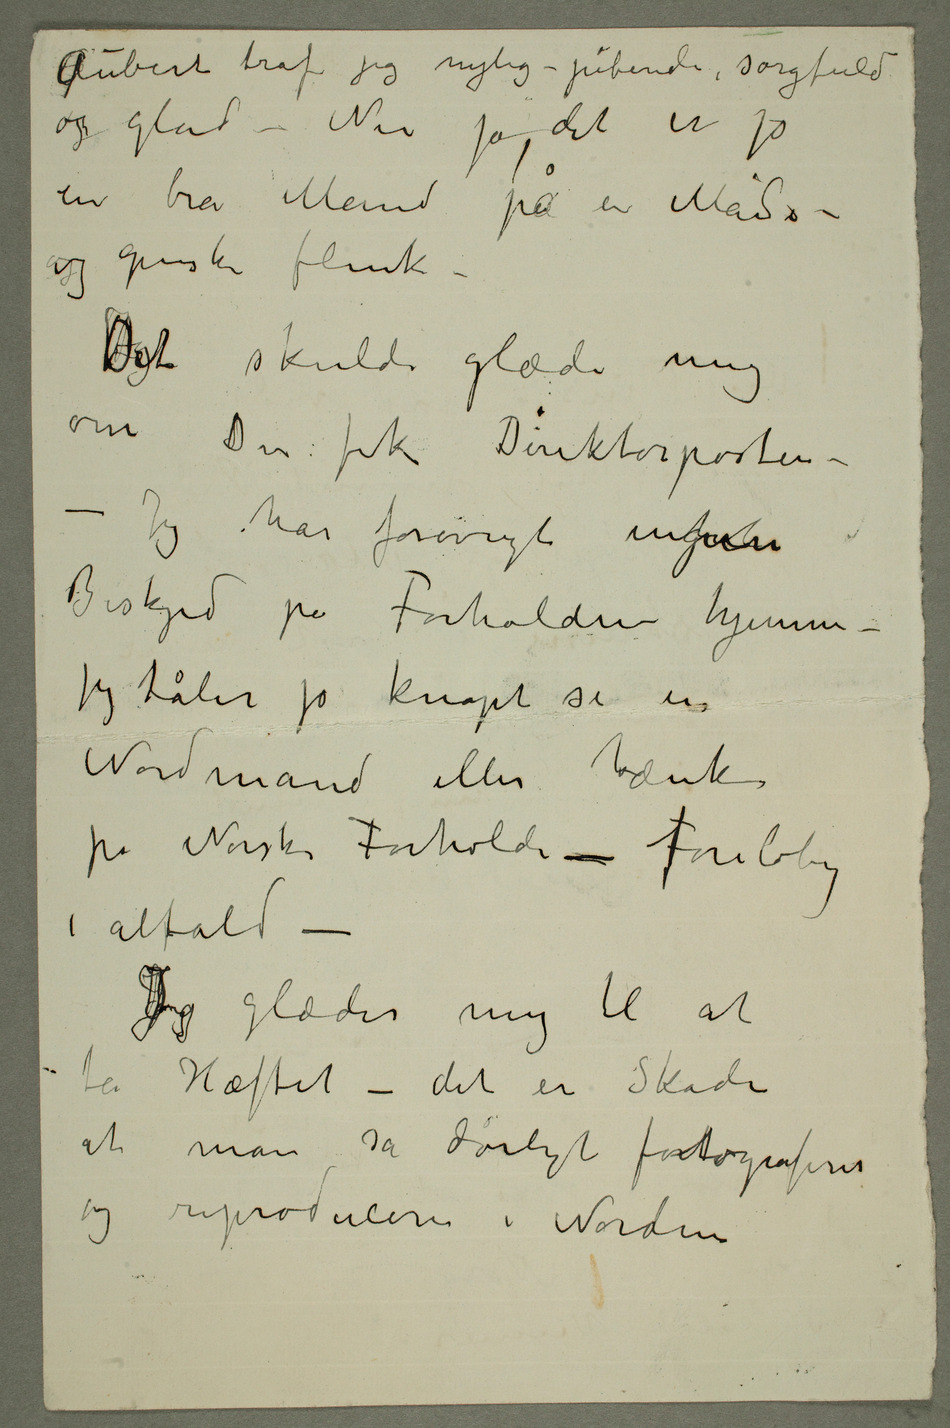 Aubert traf jeg nylig – pibende, sorgfuld
og glad – Nu ja, det er jo
en bra Mand på en Måde –
og ganske flink –
Det skulde glæde mig
om De fik Direktørposten –
– Jeg har forøvrigt ingen
Beskjed på Forholdene hjemme –
jeg tåler jo knapt se en
Nordmand eller tænke
på Norske Forholde – Foreløbig
i alfald –
Jeg glæder mig til at
få Hæftet – det er Skade
at man så dårligt fotograferer
og reproducerer i Norden